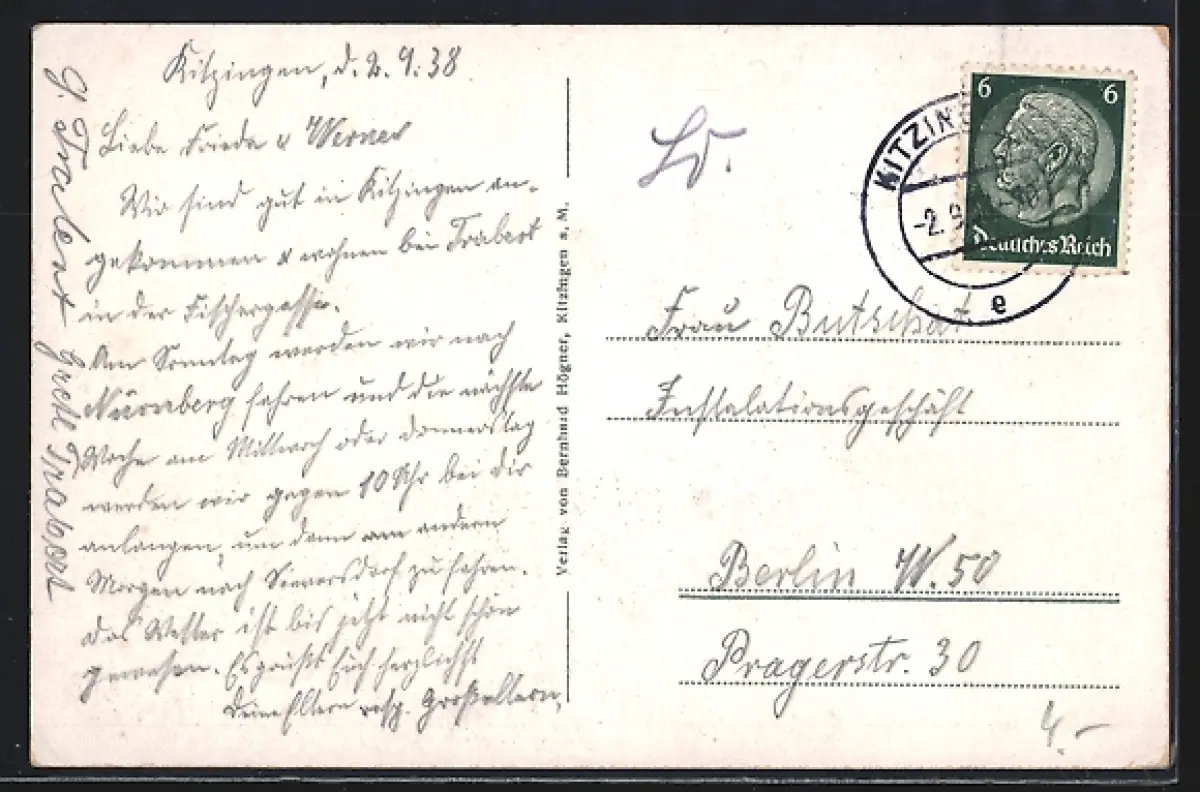 Kitzingen, d. 2.9.38
Liebe Frieda u Werner
Wir sind gut in Kitzingen an-
gekommen u wohnen bei Trabert
in der Fischergasse.
Am Sonntag werden wir nach
Nürnberg fahren und die nächste
Woche am Mittwoch oder Donnerstag
werden wir gegen 10 Uhr bei dir
anlangen, um dann am andern
Morgen nach Sieversdorf zu fahren.
Das Wetter ist bis jetzt nicht schön
gewesen. Es grüßt Euch herzlichst
Deine Eltern resp. Großeltern,
G. Trabert
Gretl Trabert
Verlag von Bernhard Högner, Kitzingen a. M.
6 6
Deutsches Reich
KITZIN
-2.9.
e
Frau Butschkat
Installationsgeschäft
Berlin W. 50
Pragerstr. 30
4.-